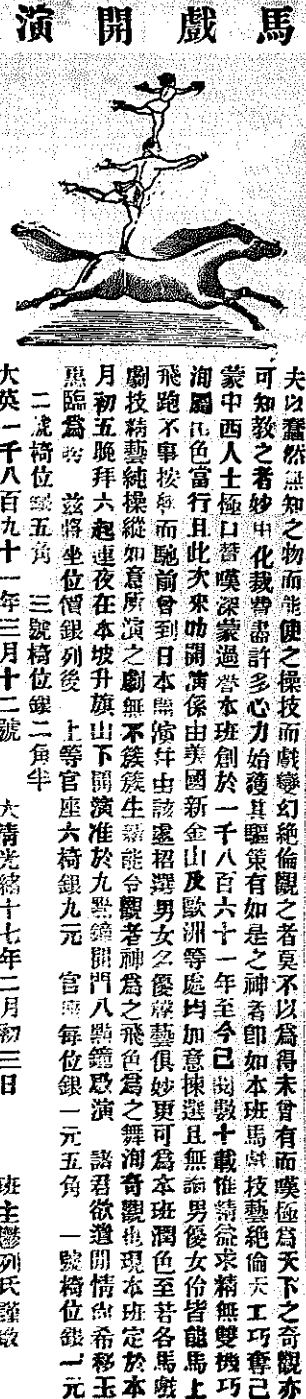 馬戲開演
夫以蠢然無知之物而能使之操技而戲變幻絕倫觀之者莫不以為得未曾有而嘆極為天下之奇觀亦
可知教之者妙中化裁費盡許多心力始護其驅策有如是之神者即如本班馬戲技藝絕倫天工巧奪已
蒙中西人士極口替嘆深蒙過譽本班創於一千八百六十一年至今已閱數十載惟精益求精無雙機巧
洵屬出色當行且此次來叻開演係由美國新金山及歐洲等處均加意揀選且無論男優女伶皆能馬上
飛跑不事按轡而馳前曾到日本 并由該處招選男女名優 藝俱妙更可為本班潤色至若各馬戲
劇技精藝純操縱如意所演之劇無不簇簇生新能令觀者神為之飛色為之舞洵奇觀也現本班定於本
月初五晚拜六起連夜在本坡升旗山下開演准於九點鐘開門八點鐘啟演 諸君欲遣閒情尚希移玉
惠臨為盼 茲將坐位價銀列後 上等官座六椅銀九元 官座每位銀一元五角 一號椅位銀一元
二號椅位銀五角 三號椅位銀二角半
大英一千八百九十一年三月十二號 大清光緒十七年二月初三日 班主鬱列氏謹啟